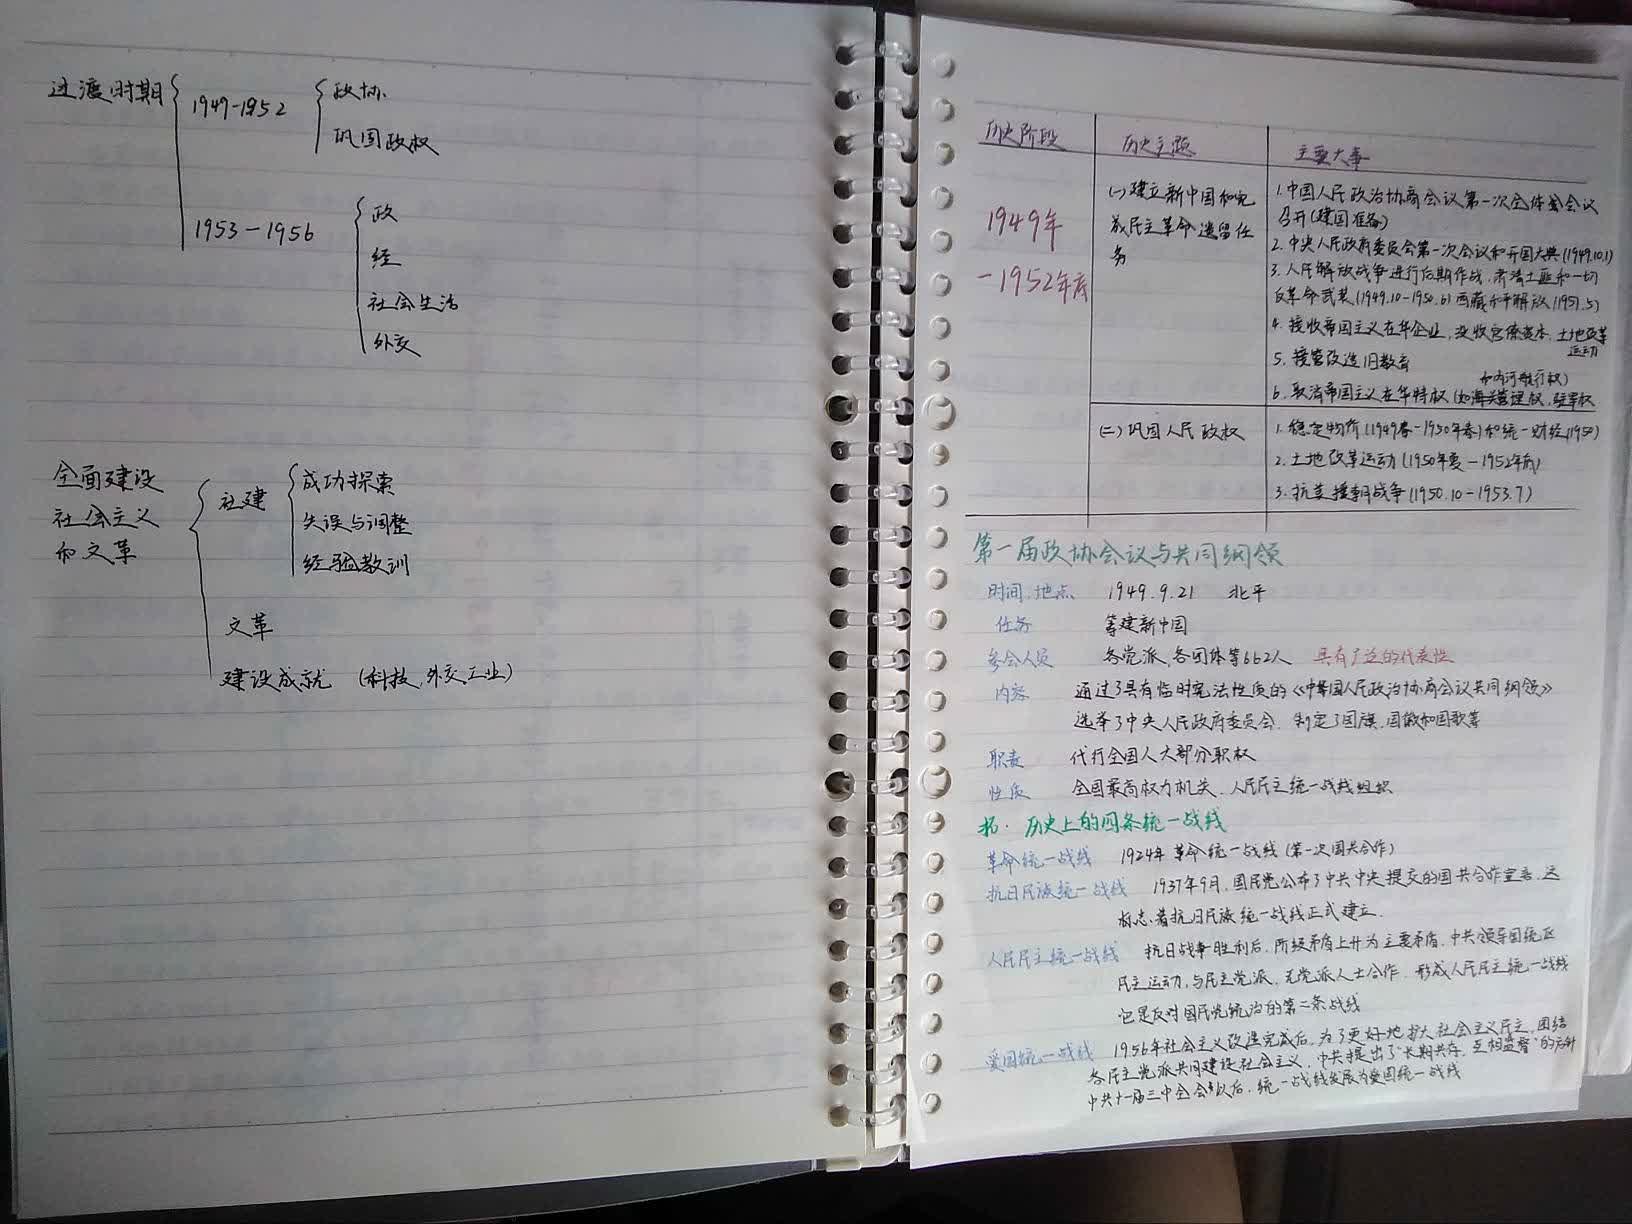 过渡时期
1949-1952
政协
巩固政权
1953-1956
政
经
社会生活
外交
全面建设
社会主义
和文革
社建
成功探索
失误与调整
经验教训
文革
建设成就 (科技,外交工业)
历史阶段 历史主题 主要大事
1949年
-1952年底
(一)建立新中国和完
成民主革命遗留任
务
1.中国人民政治协商会议第一次全体会议
召开(建国准备)
2.中央人民政府委员会第一次会议和开国大典(1949.10.1)
3.人民解放战争进行后期作战,肃清土匪和一切
反革命武装(1949.10-1950.6)西藏和平解放(1951.5)
4.接收帝国主义在华企业,没收官僚资本,土地改革
运动
5.接管改造旧教育
和内河航行权)
6.取消帝国主义在华特权(如海关管理权,驻军权
(二)巩固人民政权
1.稳定物价(1949春-1950年春)和统一财经(1950)
2.土地改革运动(1950年夏-1952年底)
3.抗美援朝战争(1950.10-1953.7)
第一届政协会议与共同纲领
时间.地点 1949.9.21 北平
任务 筹建新中国
参会人员 各党派,各团体等662人 具有广泛的代表性
内容 通过了具有临时宪法性质的《中华国人民政治协商会议共同纲领》
选举了中央人民政府委员会.制定了国旗.国徽和国歌等
职责 代行全国人大部分职权
性质 全国最高权力机关.人民民主统一战线组织
拓.历史上的四条统一战线
革命统一战线 1924年革命统一战线(第一次国共合作)
抗日民族统一战线 1937年9月,国民党公布了中共中央提交的国共合作宣言,这
标志着抗日民族统一战线正式建立.
人民民主统一战线 抗日战争胜利后,阶级矛盾上升为主要矛盾,中共领导国统区
民主运动,与民主党派,无党派人士合作.形成人民民主统一战线
它是反对国民党统治的第二条战线
爱国统一战线 1956年社会主义改造完成后,为了更好地扩大社会主义民主,团结
各民主党派共同建设社会主义,中共提出了"长期共存,互相监督"的方针
中共十一届三中全会以后,统一战线发展为爱国统一战线